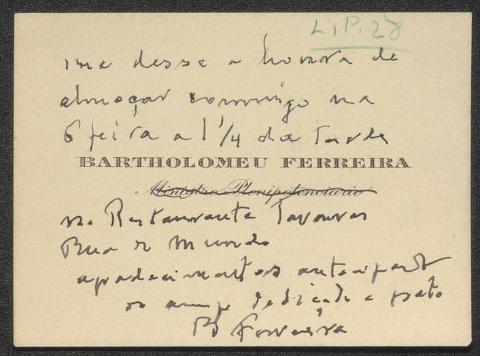 L.P.28
me desse a honra de
almoçar commigo na
6 feira a 1 1/4 da tarde
BARTHOLOMEU FERREIRA
Ministro Plenipotenciario
no Restaurante Tavares
Rua do Mundo
agradecimentos antecipados
do amigo dedicado e grato
B Ferreira